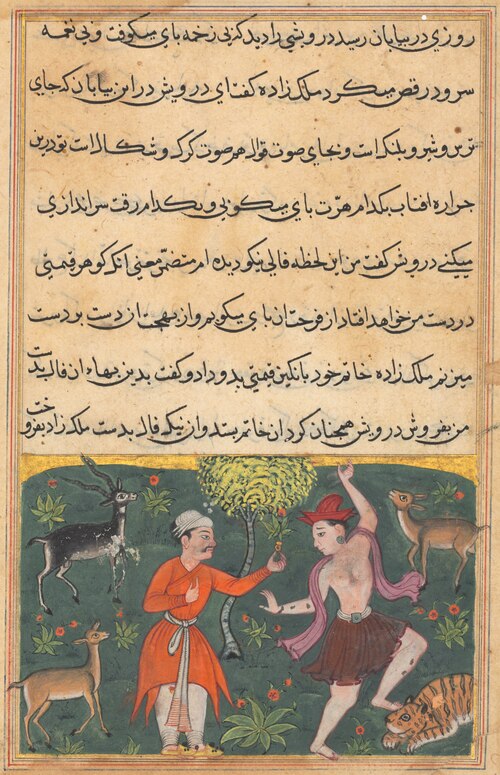 روزی در بیابان رسید درویشی را دید کز بی زخمه پای میکوفت و بی نغمه
سرود رقص میکرد ملک زاده گفت ای درویش در این بیابان که جای
و شیر و پلنک است و بجای صوت قوال همه صوت کرک و شکال است تو درین
حراره افتاب بکدام پای میکوبی و بکدام رقت سر اندازی
میکنی درویش گفت من این لحظه فالی نیکو دیده ام متضمن معنی انک کوهر قیمتی
در دست من خواهد افتاد از فرحت ان پای میکوبم و از بهجت ان دست بر دست
میزنم ملک زاده خاتم خود با نکین قیمتی بدو داد و گفت بدین بها ان فال بدست
من بفروش درویش همچنان کرد ان خاتم بستد وان نیک فال بدست ملک زاده بفروخت